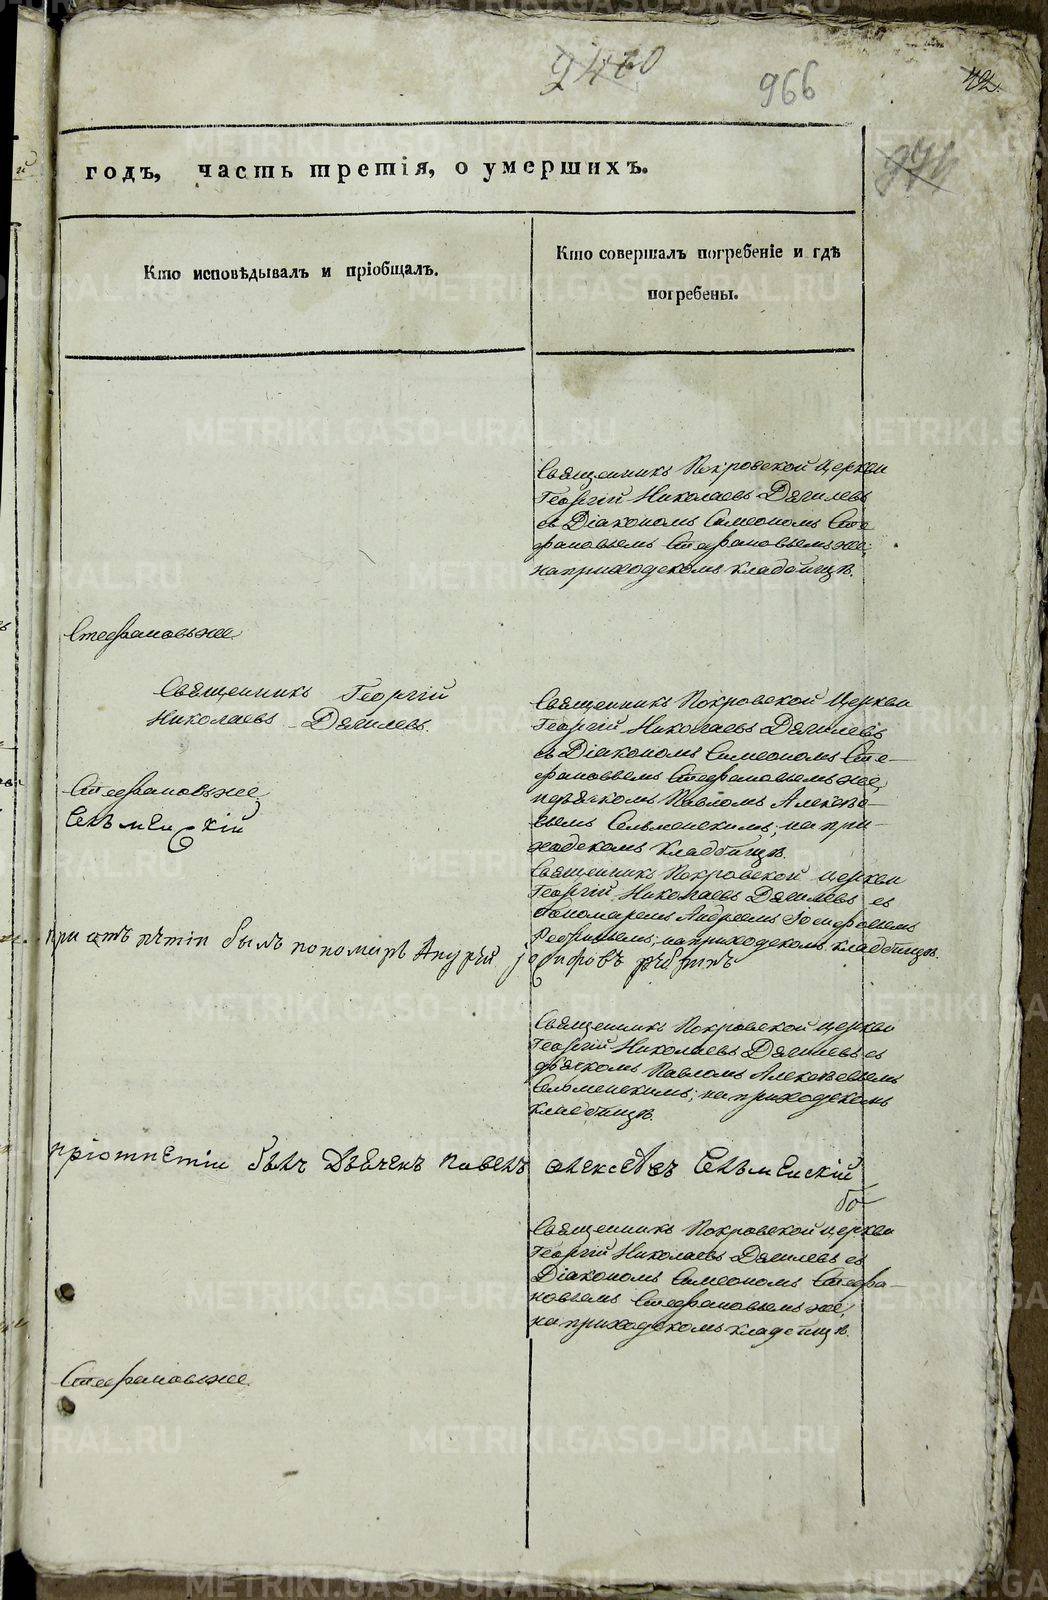 966
42.
годъ, часть третія, о умершихъ.
Кто исповѣдывалъ и пріобщалъ.
Кто совершалъ погребеніе и гдѣ
погребены.
Священникъ Покровской Церкви
Георгій Николаевъ Дягилевъ
съ Діакономъ Симеономъ Сте
фановымъ Стефановымъ же;
на приходскомъ кладбищѣ.
Стефановъ же
Священникъ Георгій
Николаевъ Дягилевъ.
Священникъ Покровской Церкви
Георгій Николаевъ Дягилевъ
съ Діакономъ Симеономъ Сте-
фановымъ Стефановымъ же,
Павломъ Алексѣе-
вымъ Сельменскимъ; на при-
ходскомъ кладбищѣ.
Стефановъ же
Сельменскій
Священникъ Покровской церкви
Георгій Николаевъ Дягилевъ съ
пономаремъ Андреемъ Іосифовымъ
на приходскомъ кладбищѣ.
при отъ пѣтіи былъ пономарь
Священникъ Покровской церкви
Георгій Николаевъ Дягилевъ съ
дьячкомъ Павломъ Алексѣевымъ
Сельменскимъ; на приходскомъ
кладбищѣ.
былъ Павелъ Сельменскій
Священникъ Покровской церкви
Георгій Николаевъ Дягилевъ съ
Діакономъ Симеономъ Стефа-
новымъ Стефановымъ же,
на приходскомъ кладбищѣ.
Стефановъ же
METRIKI.GASO-URAL.RU